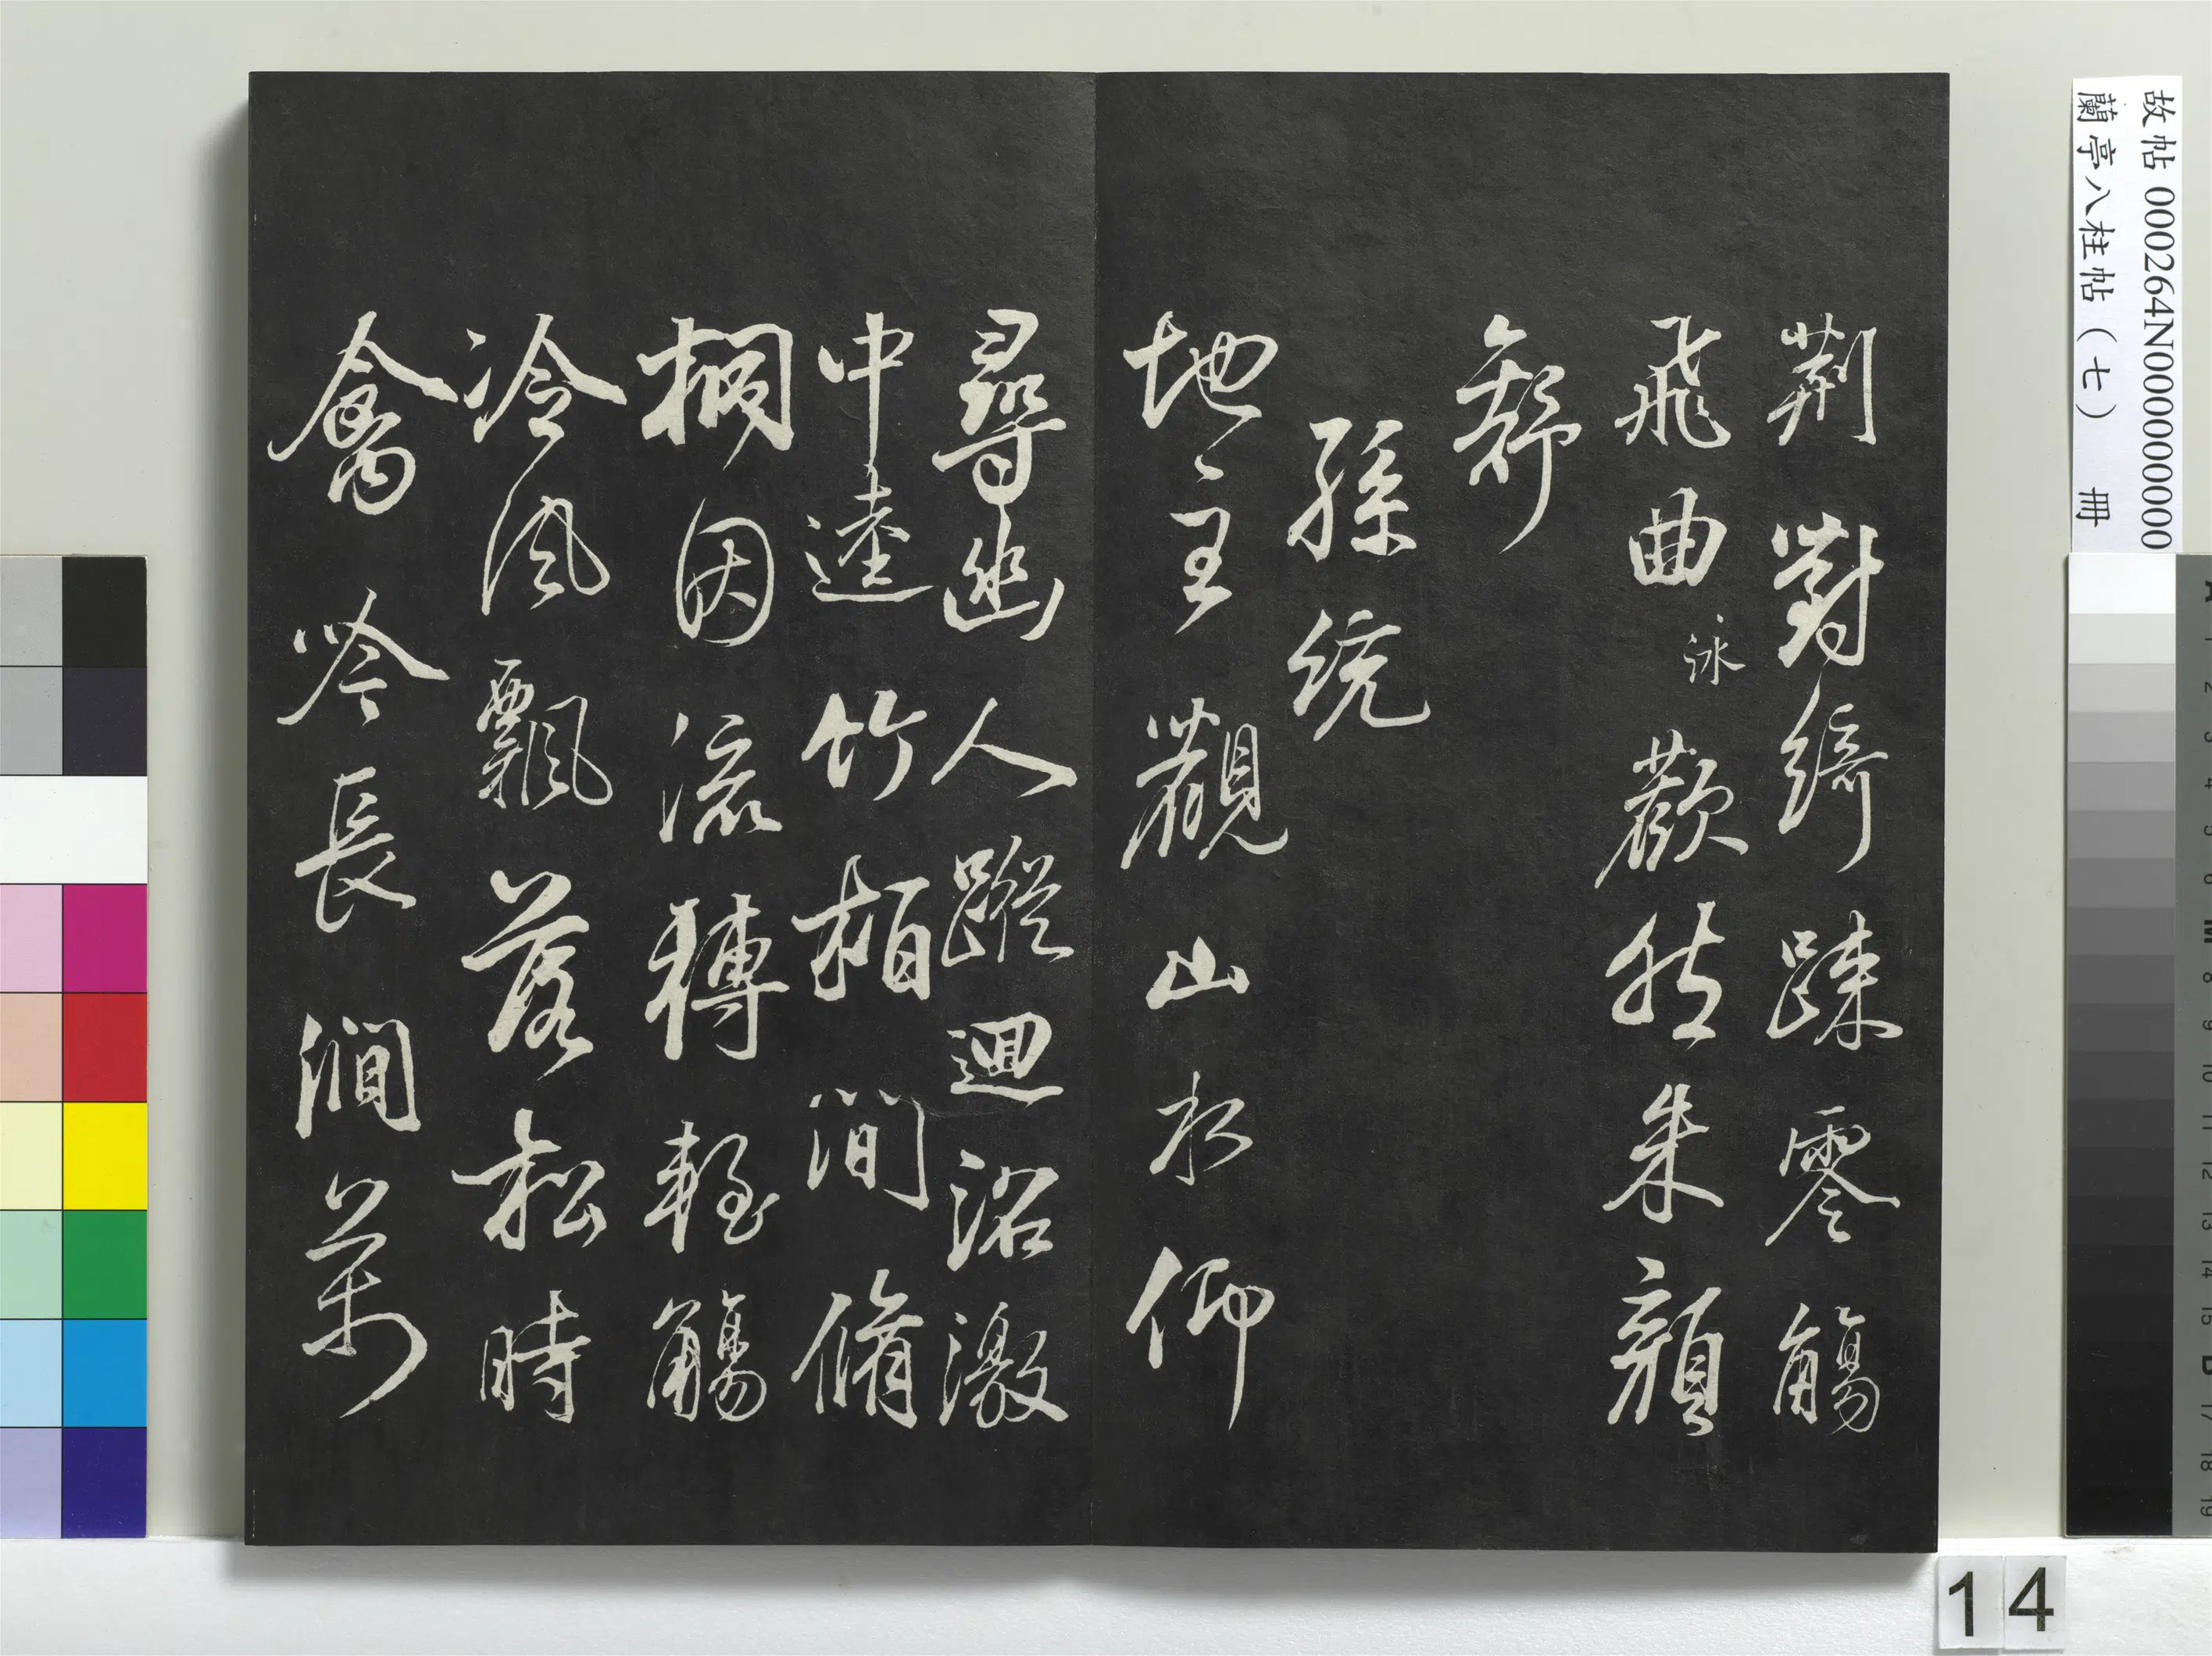 荆對綺踈零觴
飛曲泳歡然朱顔
舒
孫統
地主觀山水仰
尋幽人蹤迴沼激
中逵竹柏間脩
桐因流轉輕觴
冷風飄落松時
禽吟長澗萬
故帖 000264N000000000
蘭亭八柱帖（七） 冊
14